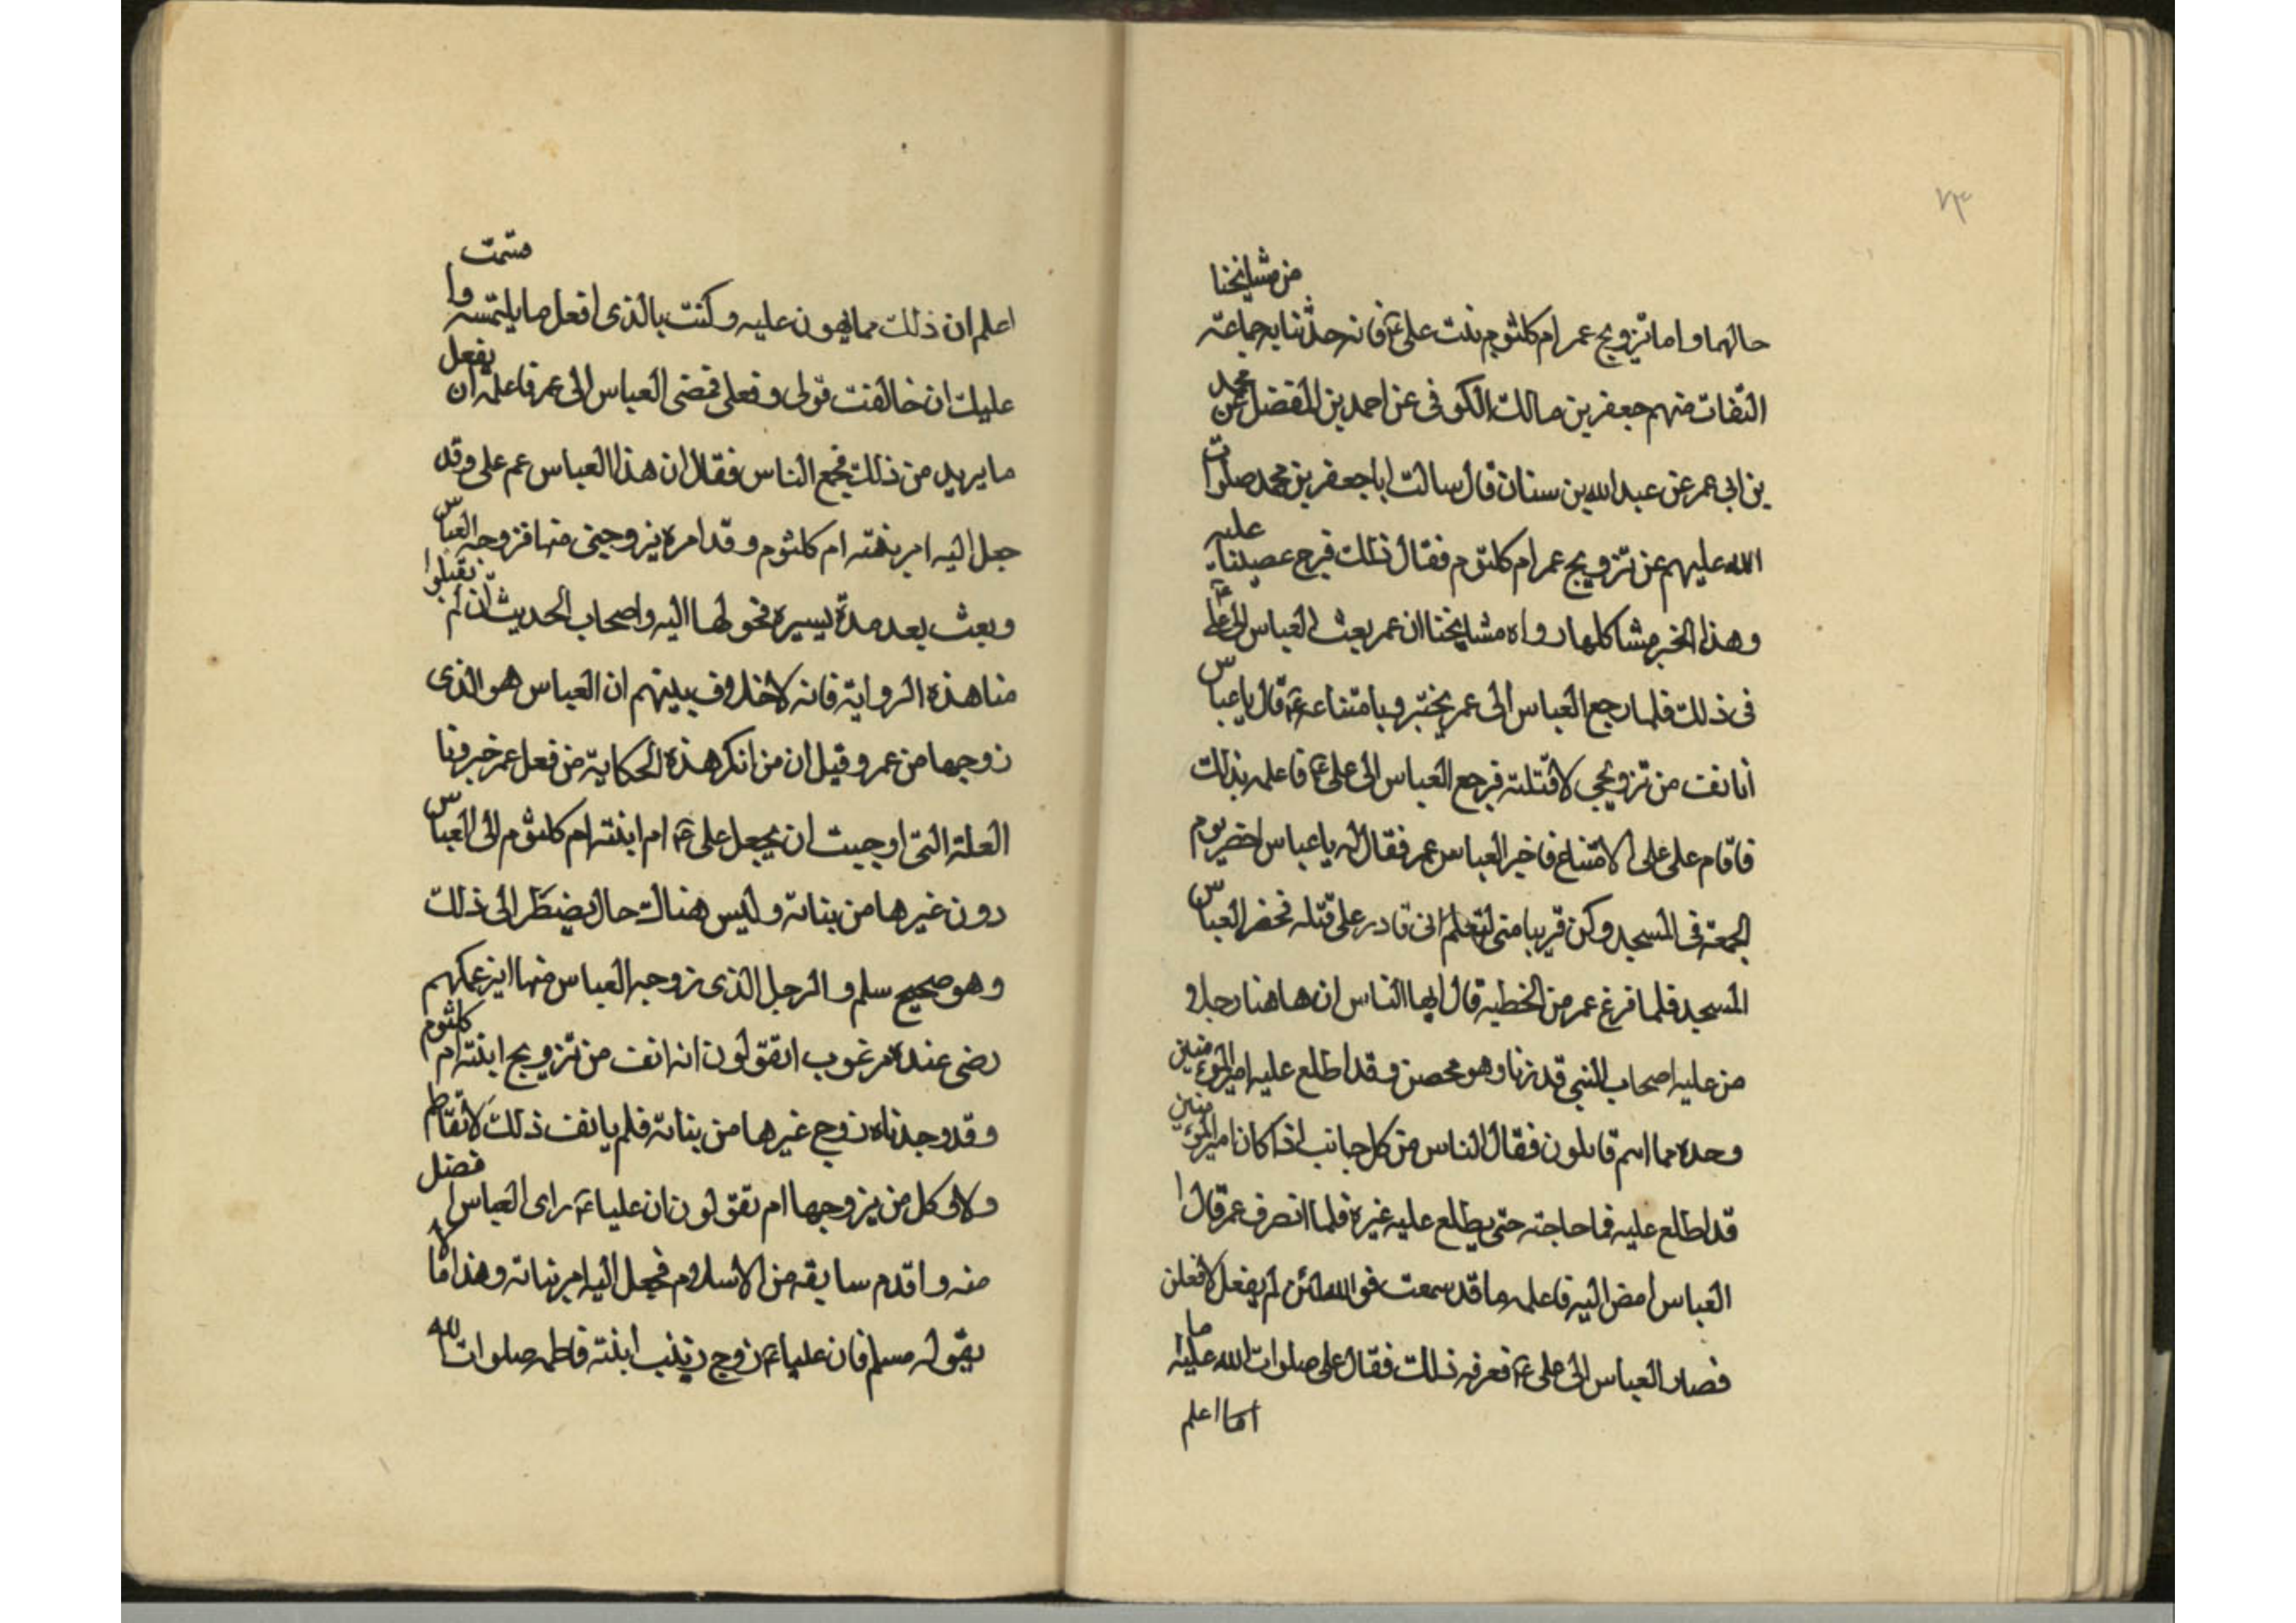 ٧٣
حالهما واما تزويج عمر ام كلثوم بنت على ع فانه حدثنا به جماعة من مشايخنا
الثقات منهم جعفر بن مالك الكوفى عن احمد بن المفضل عن محمد
بن ابى عمر عن عبد الله بن سنان قال سالت ابا جعفر بن محمد صلوات
الله عليهم عن تزويج عمر ام كلثوم فقال ذلك فرج عصبنا عليه
وهذا الخبر مشاكلها رواه مشايخنا ان عمر بعث العباس الى على ع
فى ذلك فلما رجع العباس الى عمر يخبره بامتناعه ع قال يا عباس
أنانف من تزويجى لاقتلنه فرجع العباس الى على ع فاعلمه بذلك
فاقام على على الامتناع فاخبر العباس عمر فقال له يا عباس احضر يوم
الجمعة فى المسجد وكن قريبا منى لتعلم انى قادر على قتله فحضر العباس
المسجد فلما فرغ عمر من الخطبة قال ايها الناس ان هاهنا رجل و
من علية اصحاب النبى قد زنا وهو محصن وقد اطلع عليه امير المؤمنين
وحده مما اسم قايلون فقال الناس من كل جانب اذا كان امير المؤمنين
قد اطلع عليه فما حاجته حتى يطلع عليه غيره فلما انصرف عمر قال ا
العباس امض اليه فاعلمه ما قد سمعت فو الله لئن لم يفعل لافعلن
فصار العباس الى على ع فعرفه ذلك فقال على صلوات الله عليه ما
اما اعلم
اعلم ان ذلك مما يهون عليه وكنت بالذى افعل ما يلتمسه وا متمت
عليك ان خالفت قولى وفعلى فمضى العباس الى عمر فاعلمه ان يفعل
ما يريد من ذلك فجمع الناس فقال ان هذا العباس عم على وقد
جعل اليه امر بنته ام كلثوم وقد امره يزوجنى منها فزوجه العباس
وبعث بعد مدة يسيره فحولها اليه واصحاب الحديث ان لم يقبلوا
منا هذه الرواية فانه لا خلاف بينهم ان العباس هو الذى
زوجها من عمر وقيل ان من انكر هذه الحكاية من فعل عمر خبرونا
العلة التى اوجبت ان يجعل على ع ام ابنته ام كلثوم الى العباس
دون غيرها من بناته وليس هناك حال يضطر الى ذلك
وهو صحيح سلم والرجل الذى زوجه العباس منها ايزعمكهم
رضى عنده مرغوب اتقولون انه انف من تزويج ابنته ام كلثوم
وقد وجدناه زوج غيرها من بناته فلم يانف ذلك لاتقاطم
ولا فى كل من يزوجها ام تقولون ان عليا ع راى العباس افضل
منه واقدم سابقه من الاسلام فجعل اليه امر بناته وهذا ما لا
يقوله مسلم فان عليا ع زوج زينب ابنته فاطمه صلوات الله